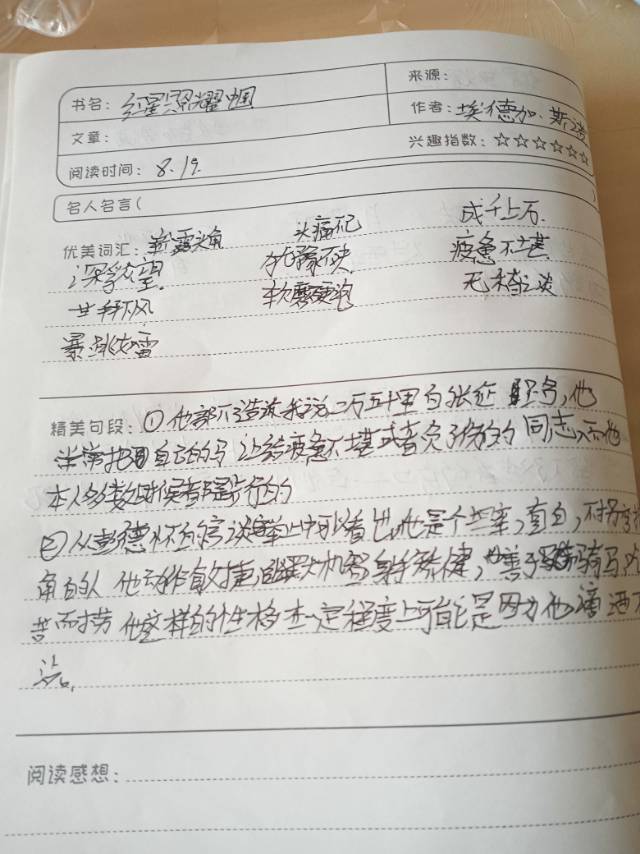 书名：红星照耀中国
来源：
作者：埃德加·斯诺
文章：
兴趣指数：☆☆☆☆☆☆
阅读时间：8.19.
名人名言（
优美词汇：崭露头角 头痛不已 成千上万.
深孚众望. 犹豫不决. 疲惫不堪.
甘拜下风 软磨硬泡 无稽之谈
暴跳如雷
精美句段：①他部下告诉我说，二万五千里的长征 路多，他
常常把自己的马 让给疲惫不堪或者负了伤的 同志，而他
本人多数时候都是步行的
②从彭德怀的言谈举止中可以看出，他是个坦率，直白，不
角的人 他动作敏捷 幽默 机智 身手矫健，善于骑马 吃
苦而耐劳 他这样的性格 在一定程度上可能是因为他滴酒不
沾。
阅读感想：